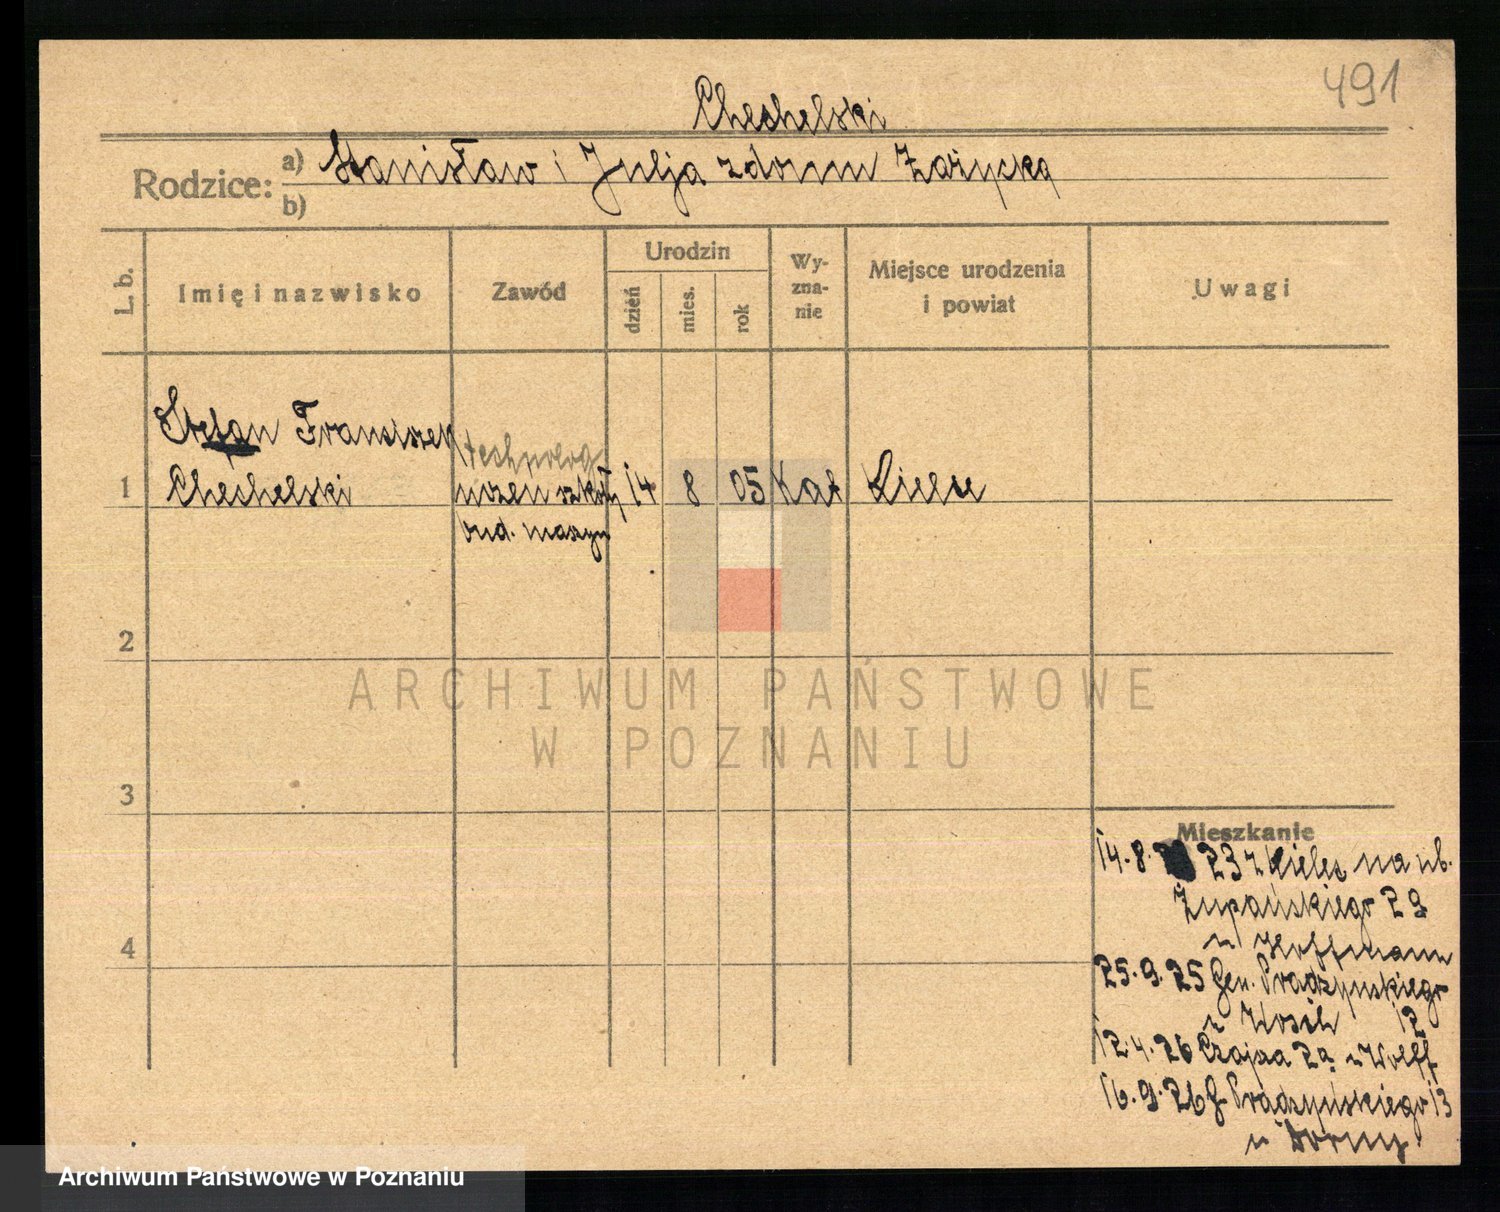 491
Chechelski
Rodzice: a) Stanisław i Julja z domu Zażycka
b)
L. b. Imię i nazwisko Zawód Urodzin dzień mies. rok Wy-zna-nie Miejsce urodzenia i powiat Uwagi
Stefan Franciszek
technolog
1 Chechelski uczeń szkoły 14 8 05 Kat Kielce
bud. maszyn
2
ARCHIWUM PAŃSTWOWE
W POZNANIU
3
Mieszkanie
14.8. 23 z Kielc na ub.
Żupańskiego 29
u Hoffmann
4
25.9.25 Gen. Prądzyńskiego
u 12
12.4.26 Czajcza 2a u Wolff
16.9.26 G. Prądzyńskiego 13
u
Archiwum Państwowe w Poznaniu